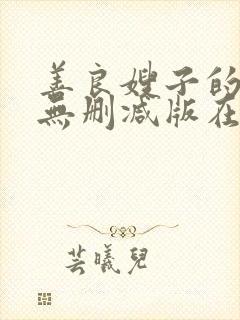 善良嫂子的
無删减版在
芸曦兒